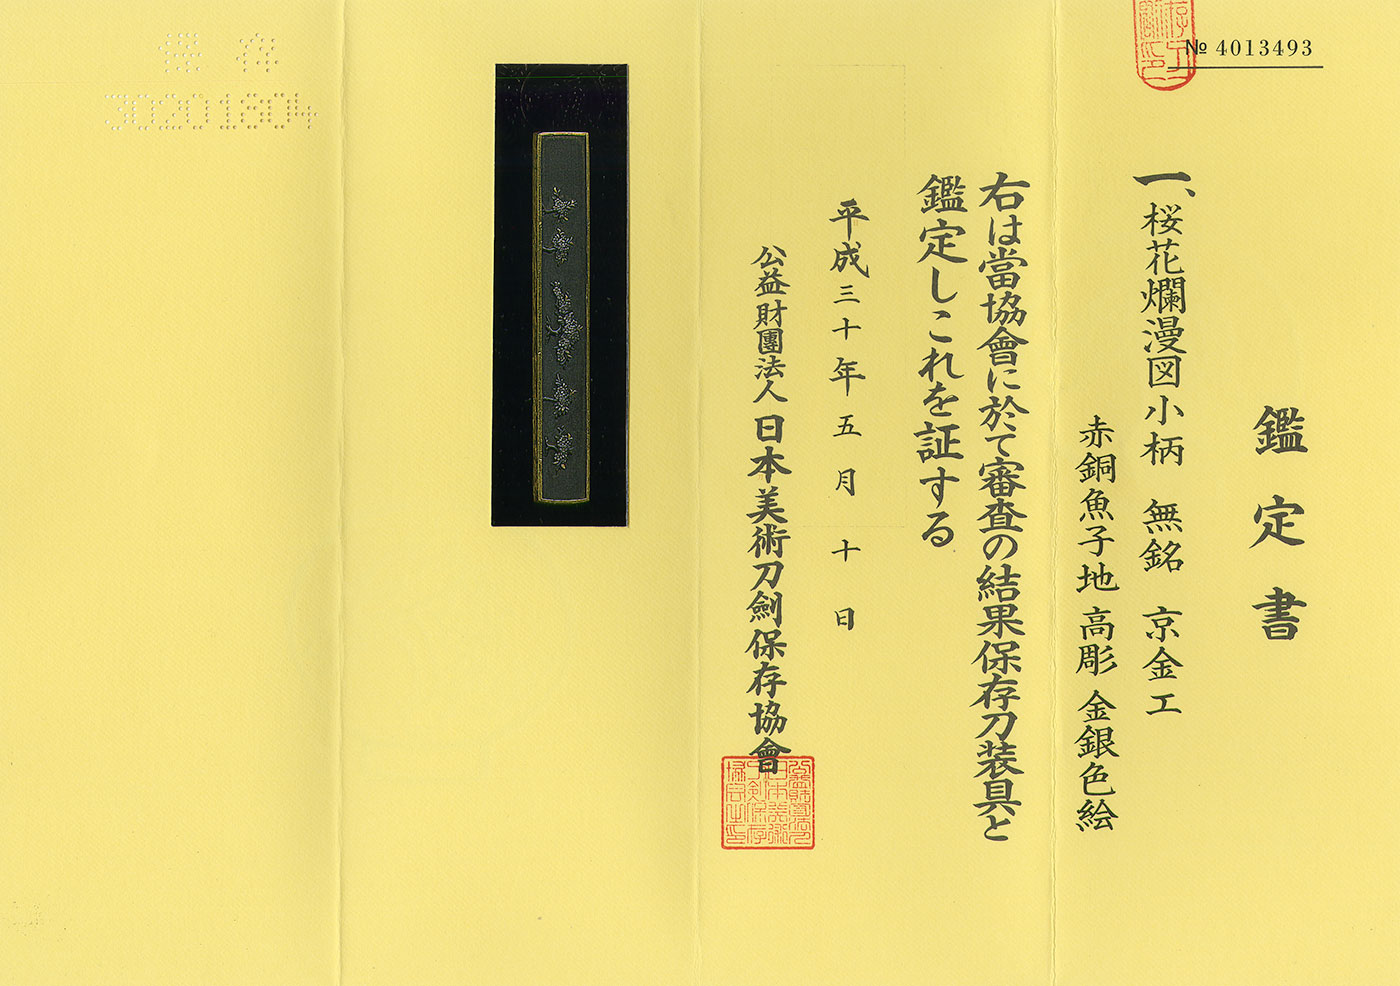 № 4013493
鑑定書
一、桜花爛漫図小柄 無銘 京金工
赤銅魚子地 高彫 金銀色絵
右は當協會に於て審査の結果保存刀装具と
鑑定しこれを証する
平成三十年五月十日
公益財團法人 日本美術刀劍保存協會
保存
30201804